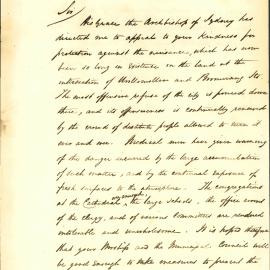 Sir
His Grace the Archbishop of Sydney has
directed me to appeal to your kindness for
protection against the nuisance, which has now
been so long in existence on the land at the
intersection of Woolloomooloo and Boomerang Sts.
The most offensive refuse of the city is poured down
there, and its offensiveness is continually renewed
by the crowd of destitute people allowed to turn it
over and over. Medical men have given warning
of the danger incurred by the large accumulation
of such matter, and by the continual exposure of
fresh surfaces to the atmosphere. The congregations
at the Cathedral, the large schools, the office rooms
of the clergy, and of various Committees are rendered
intolerable and unwholesome. It is hoped therefore
that your Worship and the Municipal Council will
be good enough to take measures to prevent the